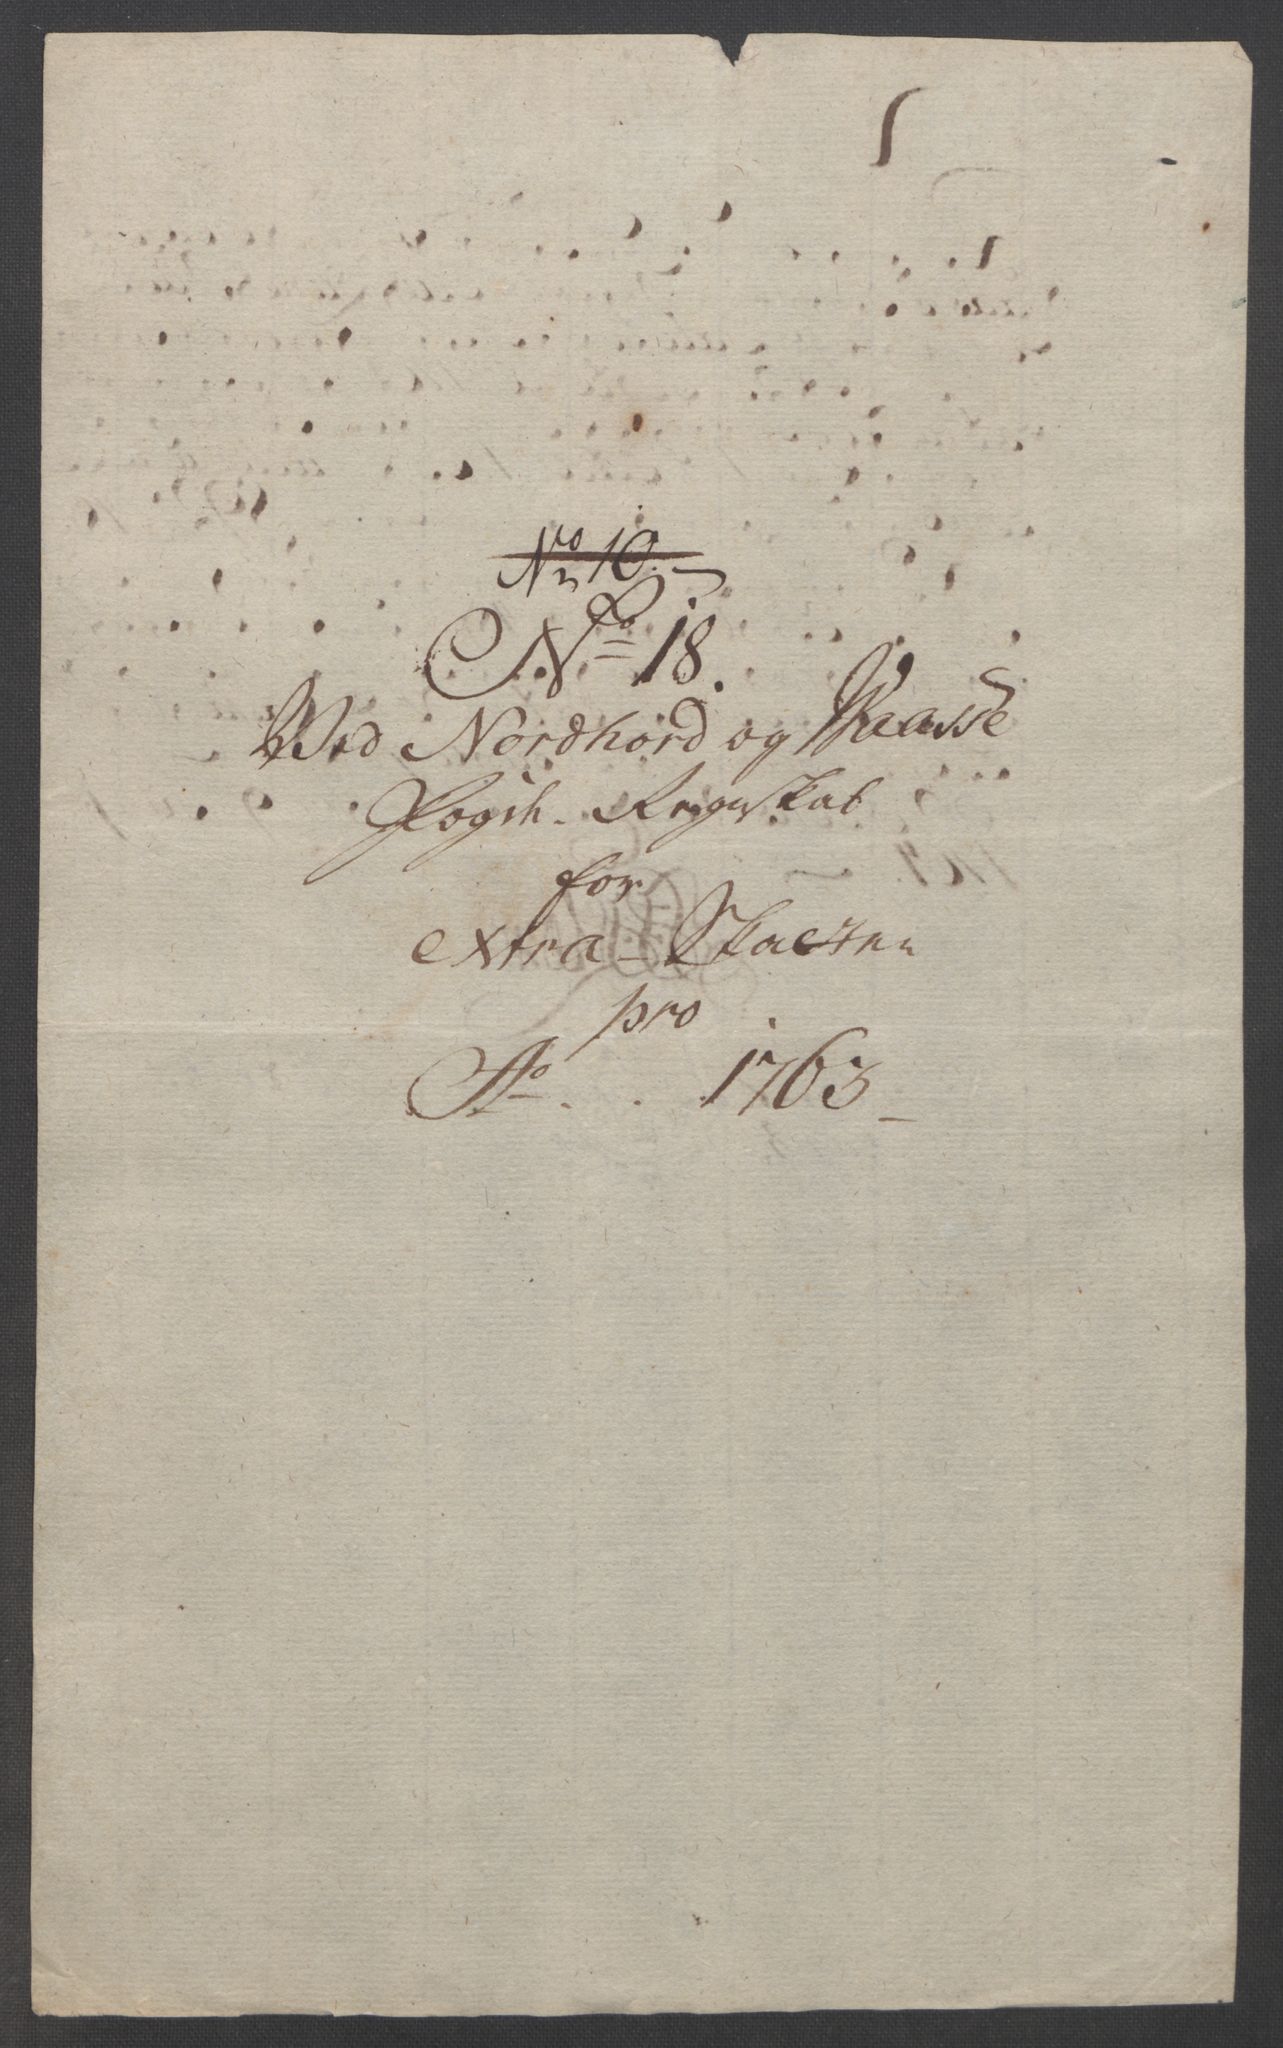 No 10.
No 18.
Ved Nordhord og Waasse
Fogd. Regnskab
for
Extra-Skatten
pro
Ao . . 1763